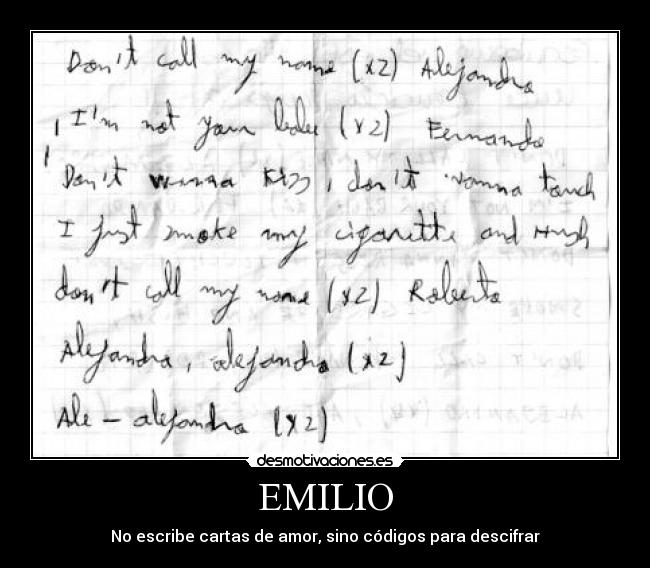 Don't call my name (x2) Alejandro
I'm not your babe (x2) Fernando
Don't wanna kiss, don't wanna touch
I just smoke my cigarette and Hush
don't call my name (x2) Roberto
Alejandro, alejandro (x2)
Ale - alejandro (x2)
desmotivaciones.es
EMILIO
No escribe cartas de amor, sino códigos para descifrar